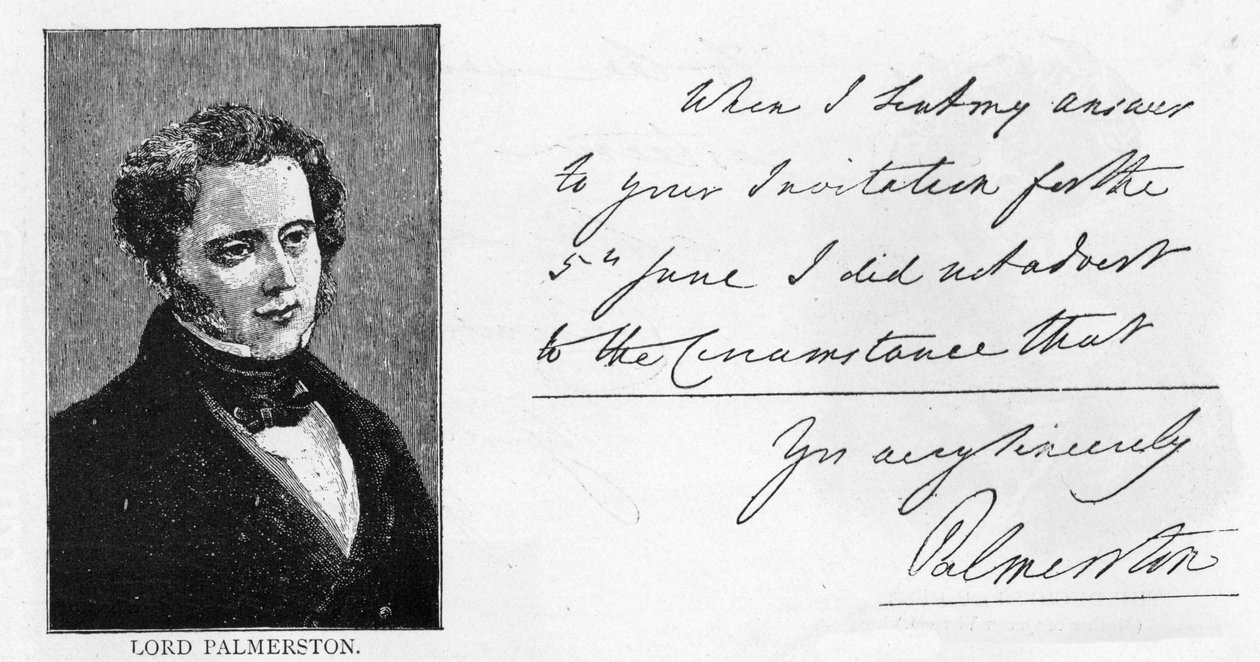 LORD PALMERSTON.
When I sent my answer
to your Invitation for the
5th June I did not advert
to the Circumstance that
Yrs very sincerely
Palmerston